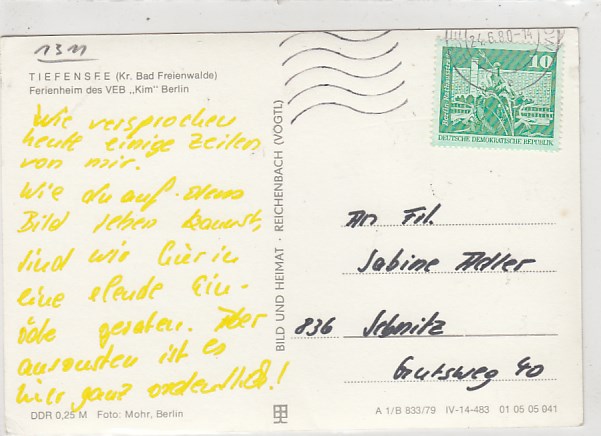 1311
TIEFENSEE (Kr. Bad Freienwalde)
Ferienheim des VEB „Kim" Berlin
Wie versprochen
heute einige Zeilen
von mir.
Wie du auf dem
Bild sehen kannst,
sind wir hier in
eine elende Ein-
öde geraten. Aber
ausrasten ist es
hier ganz ordentlich!
DDR 0,25 M Foto: Mohr, Berlin
BILD UND HEIMAT · REICHENBACH (VOGTL)
24.6.80-14
10
Berlin, Rathausstraße
DEUTSCHE DEMOKRATISCHE REPUBLIK
An Frl.
Sabine Adler
836 Sebnitz
Gutsweg 40
A 1/B 833/79 IV-14-483 01 05 05 041